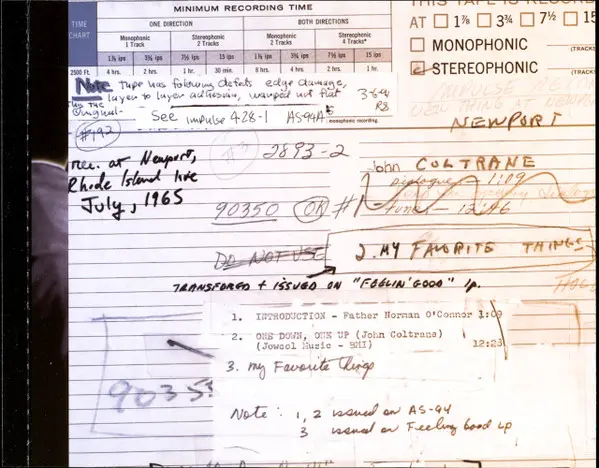 MINIMUM RECORDING TIME
TIME CHART
ONE DIRECTION
BOTH DIRECTIONS
Monophonic 1 Track
Stereophonic 2 Tracks
Monophonic 2 Tracks
Stereophonic 4 Tracks*
1⅞ ips 3¾ ips 7½ ips 15 ips 1⅞ ips 3¾ ips 7½ ips 15 ips
2500 Ft. 4 hrs. 2 hrs. 1 hr. 30 min. 8 hrs. 4 hrs. 2 hrs. 1 hr.
THIS TAPE IS RECORDED
AT 1⅞ 3¾ 7½ 15
MONOPHONIC
(TRACKS
STEREOPHONIC
(TRACKS
Note Tape has following defects edge damage,
layer to layer adhesion, warped not flat
is the original-
3-6-91
RB
See impulse 428-1 AS94A
monophonic recording.
#192
#3
2893-2
NEWPORT
Rec. at Newport,
Rhode Island live
July, 1965
John COLTRANE
Dialogue - 1:09
Tunes - 12:46
90350 OK #1
DO NOT USE
2. MY FAVORITE THINGS
TRANSFERED + ISSUED ON "FEELIN' GOOD" Lp.
1. INTRODUCTION - Father Norman O'Connor 1:09
2. ONE DOWN, ONE UP (John Coltrane)
(Jowcol Music - BMI) 12:28
3. My Favorite things
90355
Note: 1, 2 issued on AS-94
3 issued on Feeling Good Lp